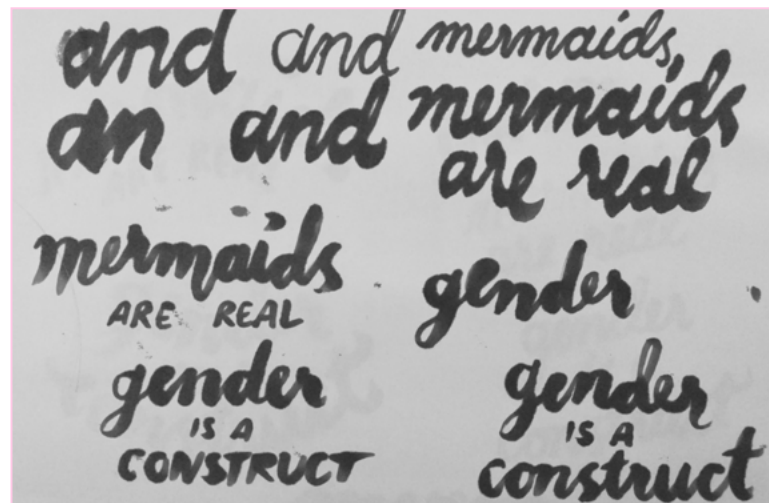 and and mermaids,
an and mermaids
are real
mermaids
ARE REAL
gender
gender
IS A
CONSTRUCT
gender
IS A
construct